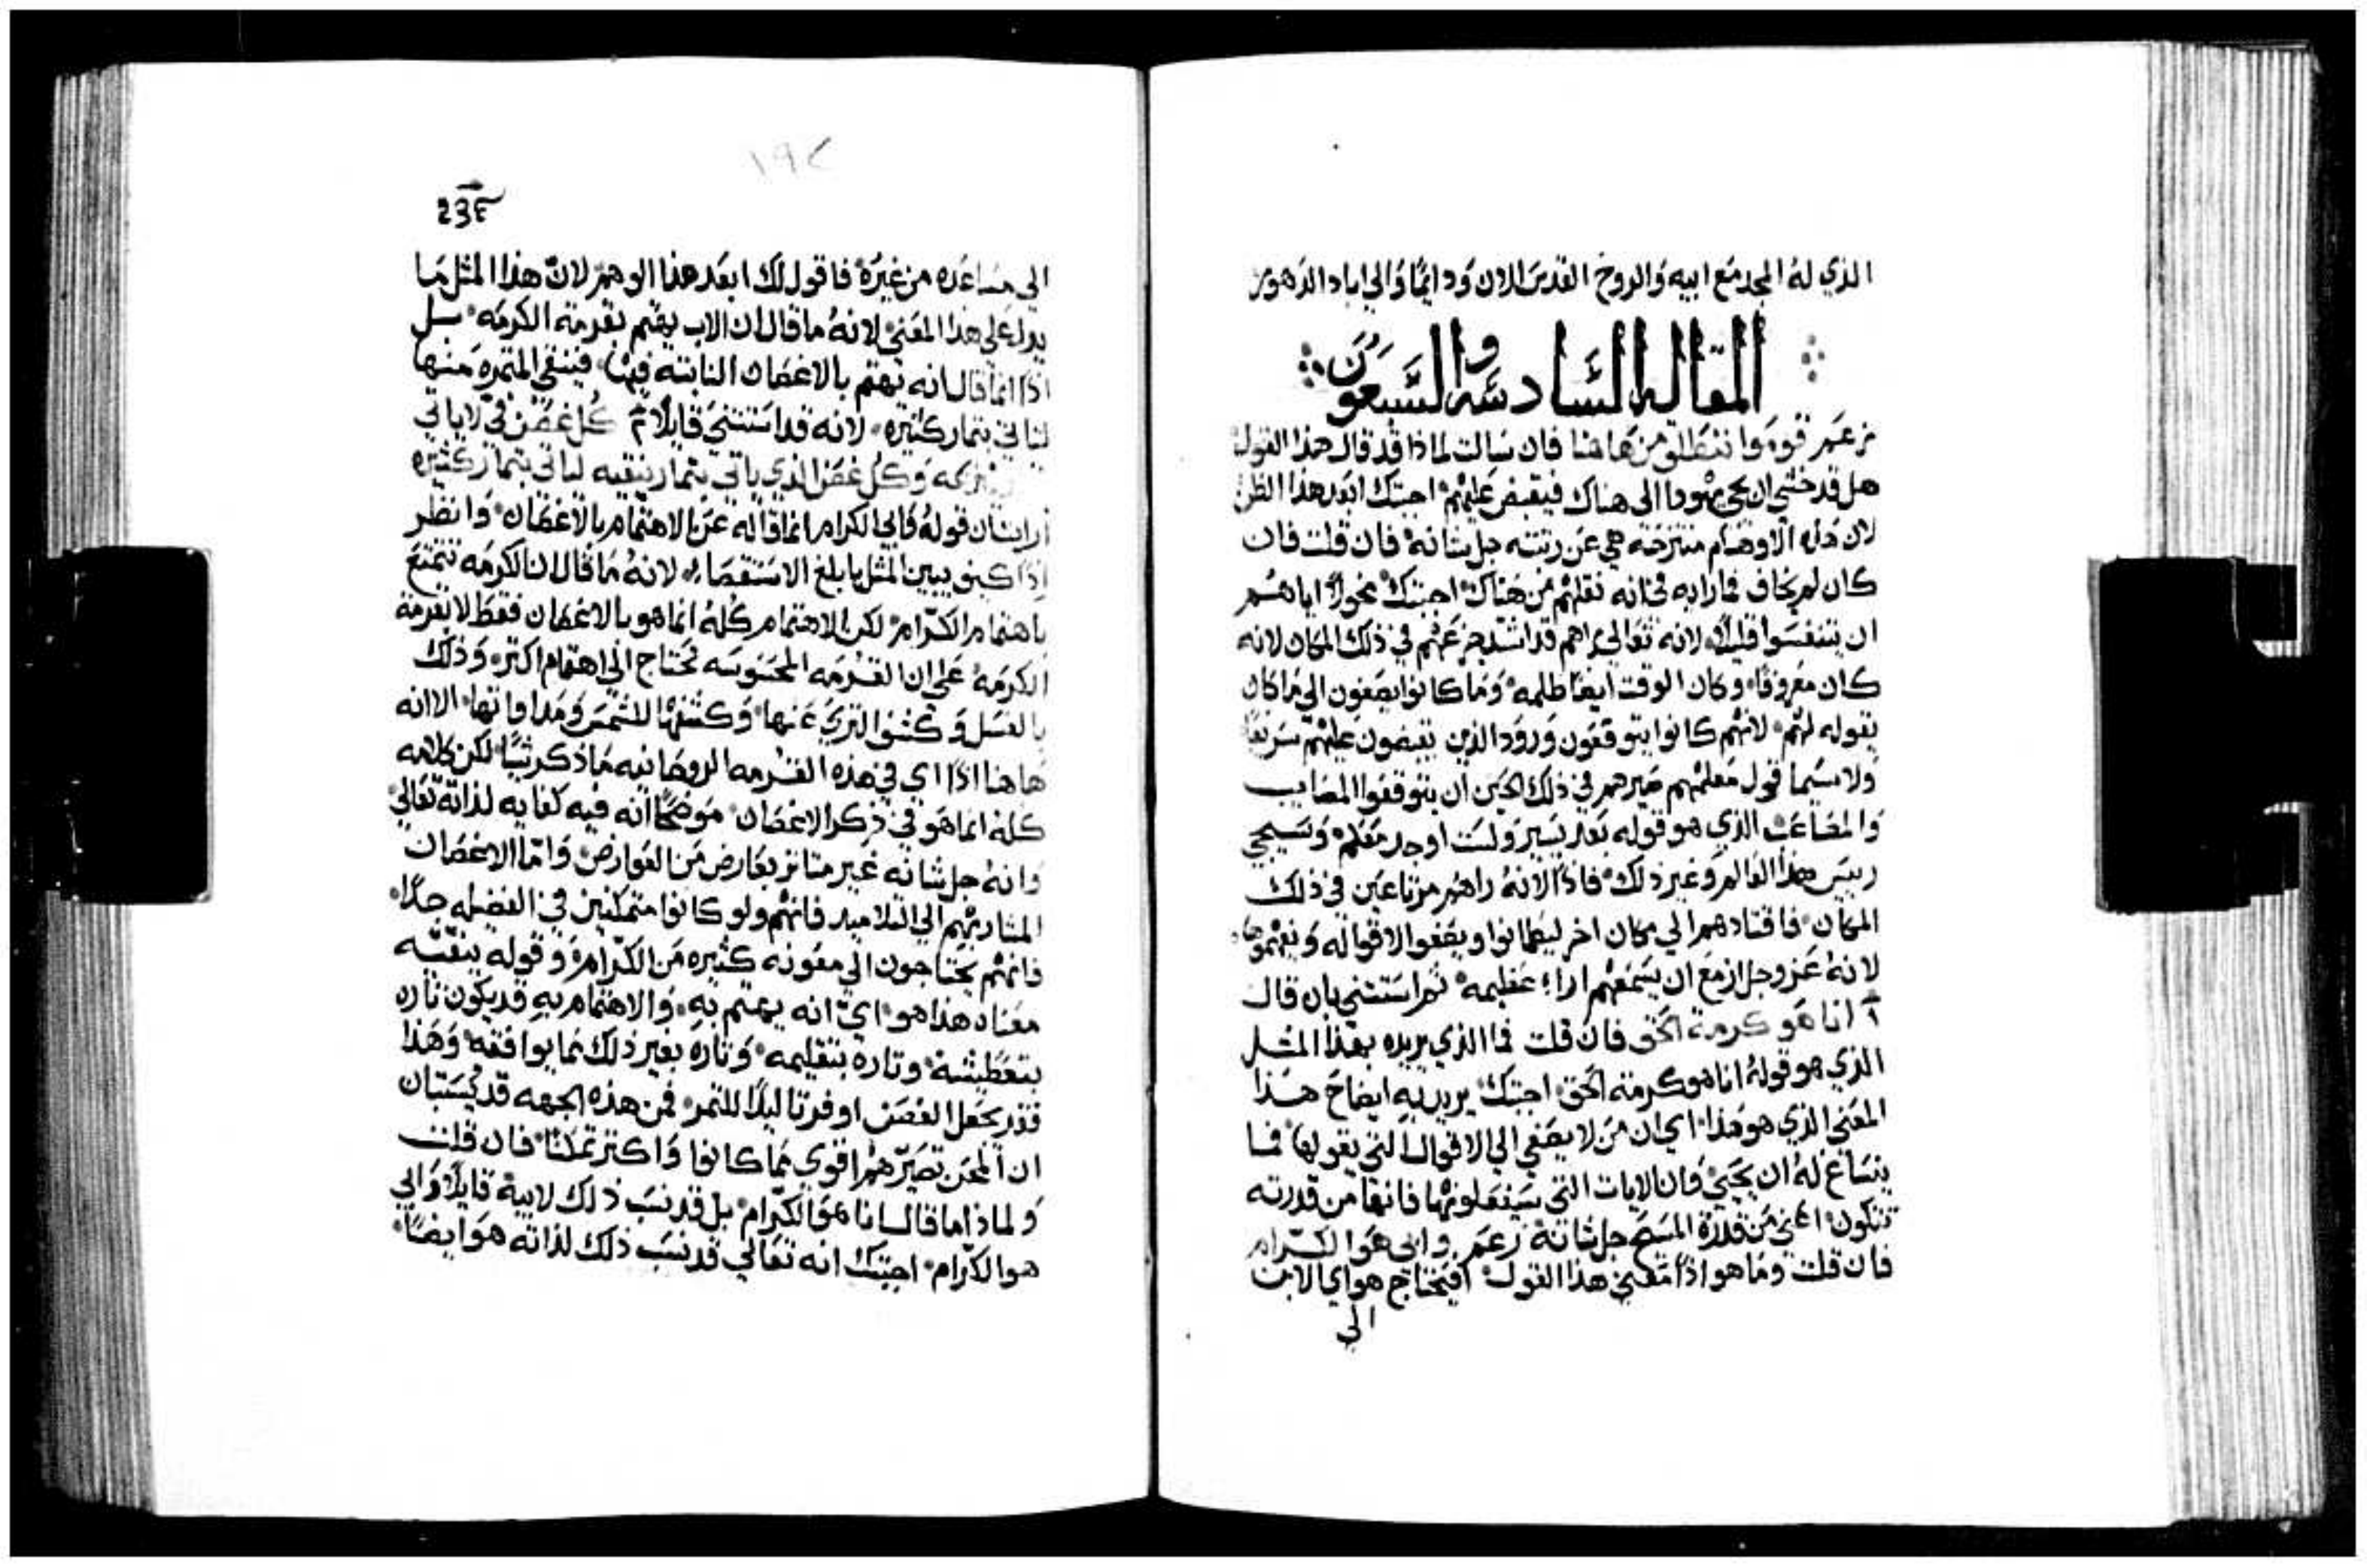 الذي له المجد مع ابيه والروح القدس الان ودايمًا والي اباد الدهور
المقاله السادسه والسبعون
زعم قوموا ننطلق من هاهنا فان سالت لماذا قد قال هذا القول
هل قد خشي ان يجي يهودا الى هناك فيقبض عليهم اجبتك ابعد هذا الظن
لان هذه الاوهام منتزحة هي عن رتبته جل شانه فان قلت فان
كان لم يخاف فما رابه في انه نقلهم من هناك اجبتك مخولًا اياهم
ان يتنفسوا قليلًا لانه تعالي راهم قد اشتد جزعهم في ذلك المكان لانه
كان معروفًا وكان الوقت ايضًا ظلمه وما كانوا يصغون الي ما كان
يقوله لهم لانهم كانوا يتوقعون ورود الذين يقبضون عليهم سريعًا
ولا سيما قول معلمهم صيرهم في ذلك الحين ان يتوقعوا المصايب
والمصاعب الذي هو قوله بعد يسير ولست اوجد معكم وسيجي
رييس هذا العالم وغير ذلك فاذًا لانه راهم مرتاعين في ذلك
المكان فاقتادهم الي مكان اخر ليطمانوا ويصغوا لاقواله ويفهموها
لانه عز وجل ازمع ان يسمعهم اراء عظيمه ثم استثني بان قال
انا هو كرمة الحق فان قلت فما الذي يريده بهذا المثل
الذي هو قوله انا هو كرمة الحق اجبتك يريد به ايضاح هذا
المعني الذي هو هذا اي ان من لا يصغي الي الاقوال التي يقولها فما
ينساغ له ان يحيي وان الايات التي سيفعلونها فانها من قدرته
تتكون اعني من قدرة المسيح جل شانه زعم وابي هو الكرام
فان قلت وما هو اذًا معني هذا القول افيحتاج هو اي الابن
الي
١٩٢
الي مساعده من غيره فاقول لك ابعد هذا الوهم لان هذا المثل ما
يدل علي هذا المعني لانه ما قال ان الاب يهتم بقرمة الكرمه بل
اذًا انما قال انه يهتم بالاغصان النابته فيها فينقي المثمره منها
لتاتي بثمار كثيره لانه قد استثني قايلًا كل غصن في لا ياتي
وكل غصن الذي ياتي بثمار ينقيه لياتي بثمار كثيره
ارايت ان قوله وابي الكرام انما قاله عن الاهتمام بالاغصان وانظر
اذًا كيف يبين المثل بابلغ الاستقصاء لانه ما قال ان الكرمه تتمتع
باهتمام الكرام لكن الاهتمام كله انما هو بالاغصان فقط لا بقرمة
الكرمه علي ان القرمه المحسوسه تحتاج الي اهتمام اكثر وذلك
بالغسل وكشف الثري عنها وكشفها للشمس ومداواتها الا انه
هاهنا اذًا اي في هذه القرمه الروحانيه ما ذكر شيًا لكن كلامه
كله انما هو في ذكر الاغصان موضحًا انه فيه كفايه لذاته تعالي
وانه جل شانه غير متاثر بعارض من العوارض واما الاغصان
المشار بهم الي التلاميد فانهم ولو كانوا متمكنين في الفضيله جدًا
فانهم يحتاجون الي معونه كثيره من الكرام وقوله ينقيه
معناه هذا هو اي انه يهتم به والاهتمام به قد يكون تاره
بتعطيشه وتاره بتقليمه وتاره بغير ذلك مما يوافقه وهذا
فقد يجعل الغصن اوفر تاليدًا للثمر فمن هذه الجهه قد يستبان
ان المحن تصيرهم اقوي مما كانوا واكثر تمكنًا فان قلت
ولماذا ما قال انا هو الكرام بل قد نسب ذلك لابيه قايلًا وابي
هو الكرام اجبتك انه تعالي قد نسب ذلك لذاته هو ايضًا